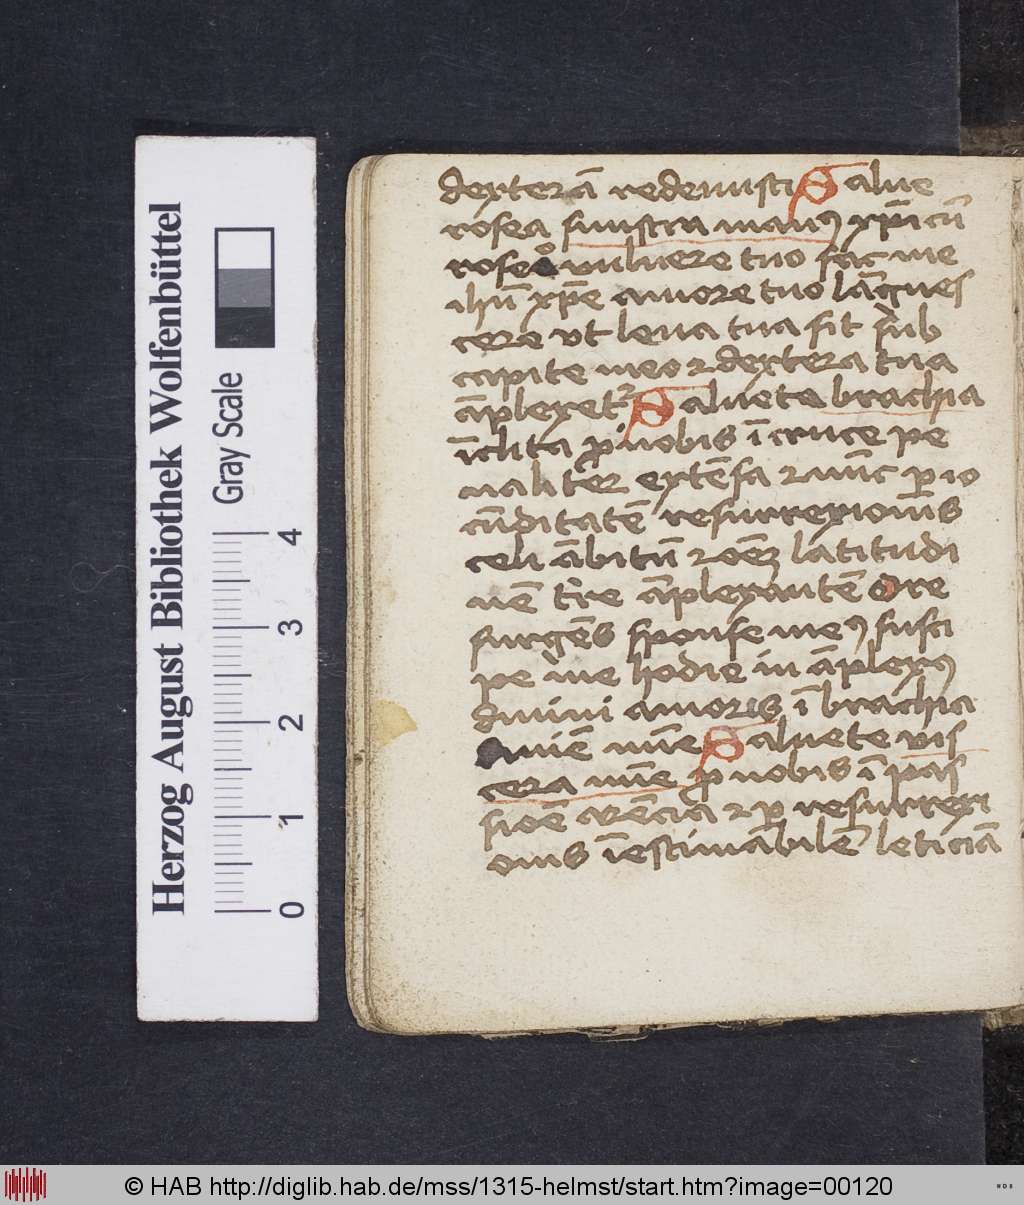 dexterā redemisti Salue
rosea sinistra manꝰ xp̄i cū
roseo vulnere tuo fac me
ihū xp̄e amore tuo lāgues
cere vt leua tua sit sub
capite meo ⁊ dextera tua
āplexet᷑ Saluete brachia
īclita ꝓ nobis ī cruce pe
naliter extēsa ⁊ nūc ꝑ io
cūditatē resurrexionis
celi ābitū ⁊ oēꝫ latitudi
nē tr̄e āplexantē O re
surgēs sponse meꝰ susci
pe me hodie in āplexꝰ
diuini amoris ī brachia
aīe mee Saluete vis
cera ꝓ nobis ī pas
sioē ⁊ ꝑ resurrexi
onis īestimabilē leticiā
Herzog August Bibliothek Wolfenbüttel
Gray Scale
0 1 2 3 4
© HAB http://diglib.hab.de/mss/1315-helmst/start.htm?image=00120